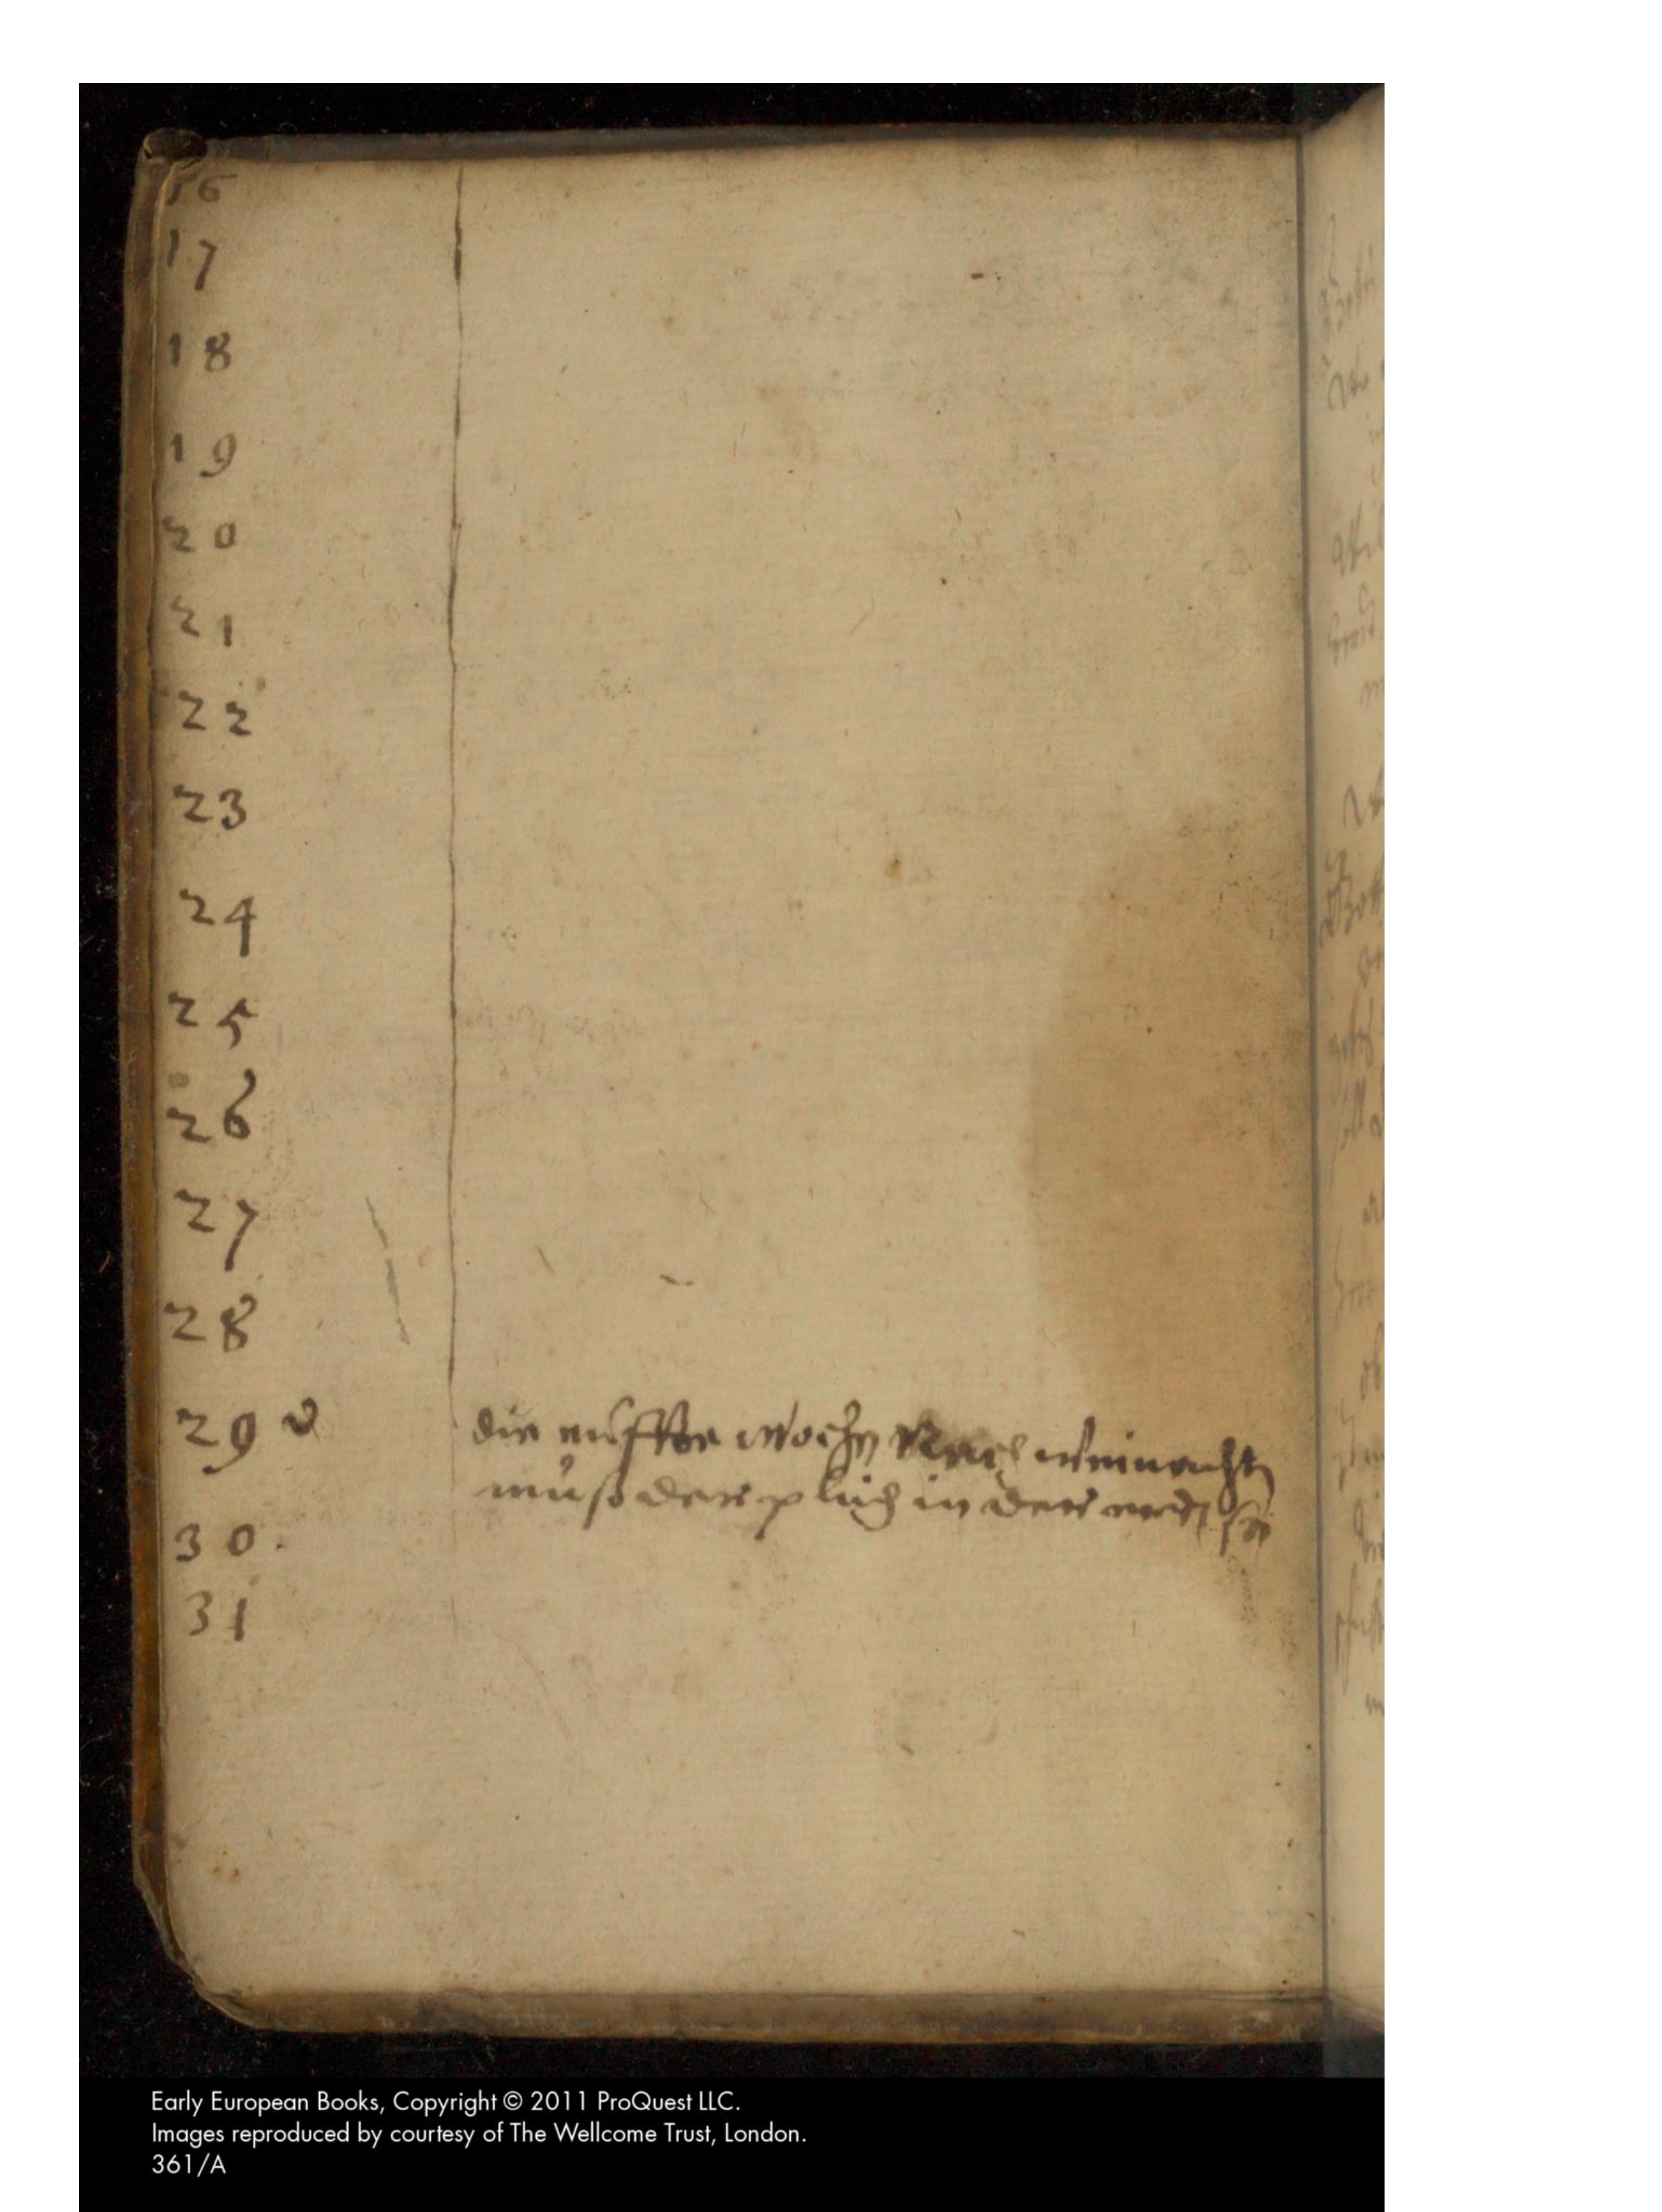 16
17
18
19
20
21
22
23
24
25
26
27
28
29 d die wochen Nach weinachten
muß der pluch in der erdt sein
30.
31
Early European Books, Copyright © 2011 ProQuest LLC.
Images reproduced by courtesy of The Wellcome Trust, London.
361/A